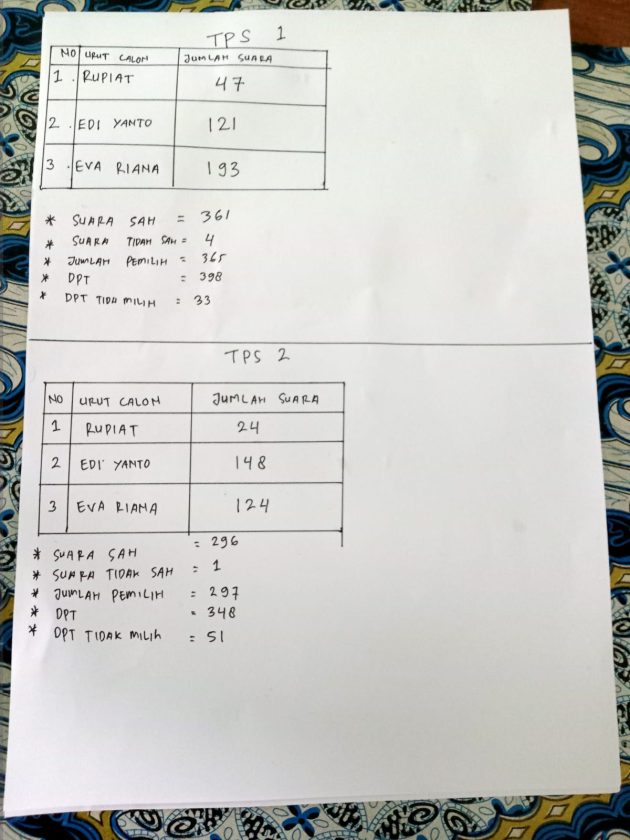 TPS 1
NO URUT CALON JUMLAH SUARA
1. RUPIAT 47
2. EDI YANTO 121
3. EVA RIANA 193
* SUARA SAH = 361
* SUARA TIDAH SAH = 4
* JUMLAH PEMILIH = 365
* DPT = 398
* DPT TIDA MILIH = 33
TPS 2
NO URUT CALON JUMLAH SUARA
1 RUPIAT 24
2 EDI YANTO 148
3 EVA RIANA 124
* SUARA SAH = 296
* SUARA TIDAK SAH = 1
* JUMLAH PEMILIH = 297
* DPT = 348
* DPT TIDAK MILIH = 51